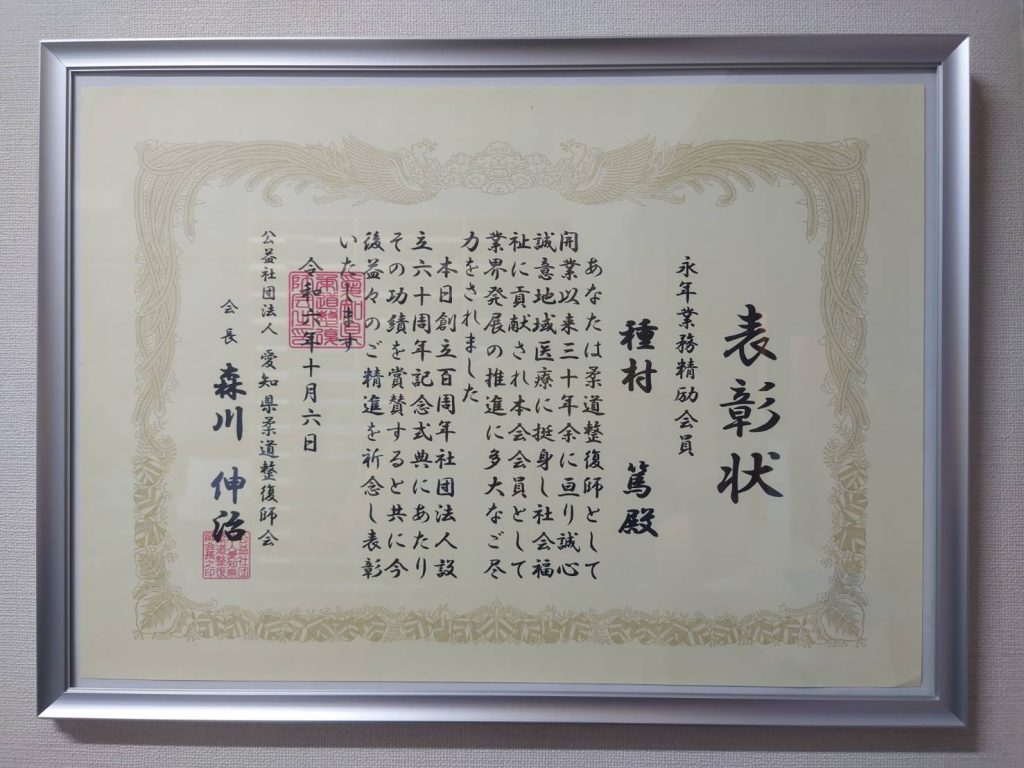 表彰状
永年業務精励会員
種村 篤殿
あなたは柔道整復師として
開業以来三十年余に亘り誠心
誠意地域医療に挺身し社会福
祉に貢献され本会会員として
業界発展の推進に多大なご尽
力をされました
本日創立百周年社団法人設
立六十周年記念式典にあたり
その功績を賞賛すると共に今
後益々のご精進を祈念し表彰
いたします
令和六年十月六日
公益社団法人 愛知県柔道整復師会
会長 森川 伸治